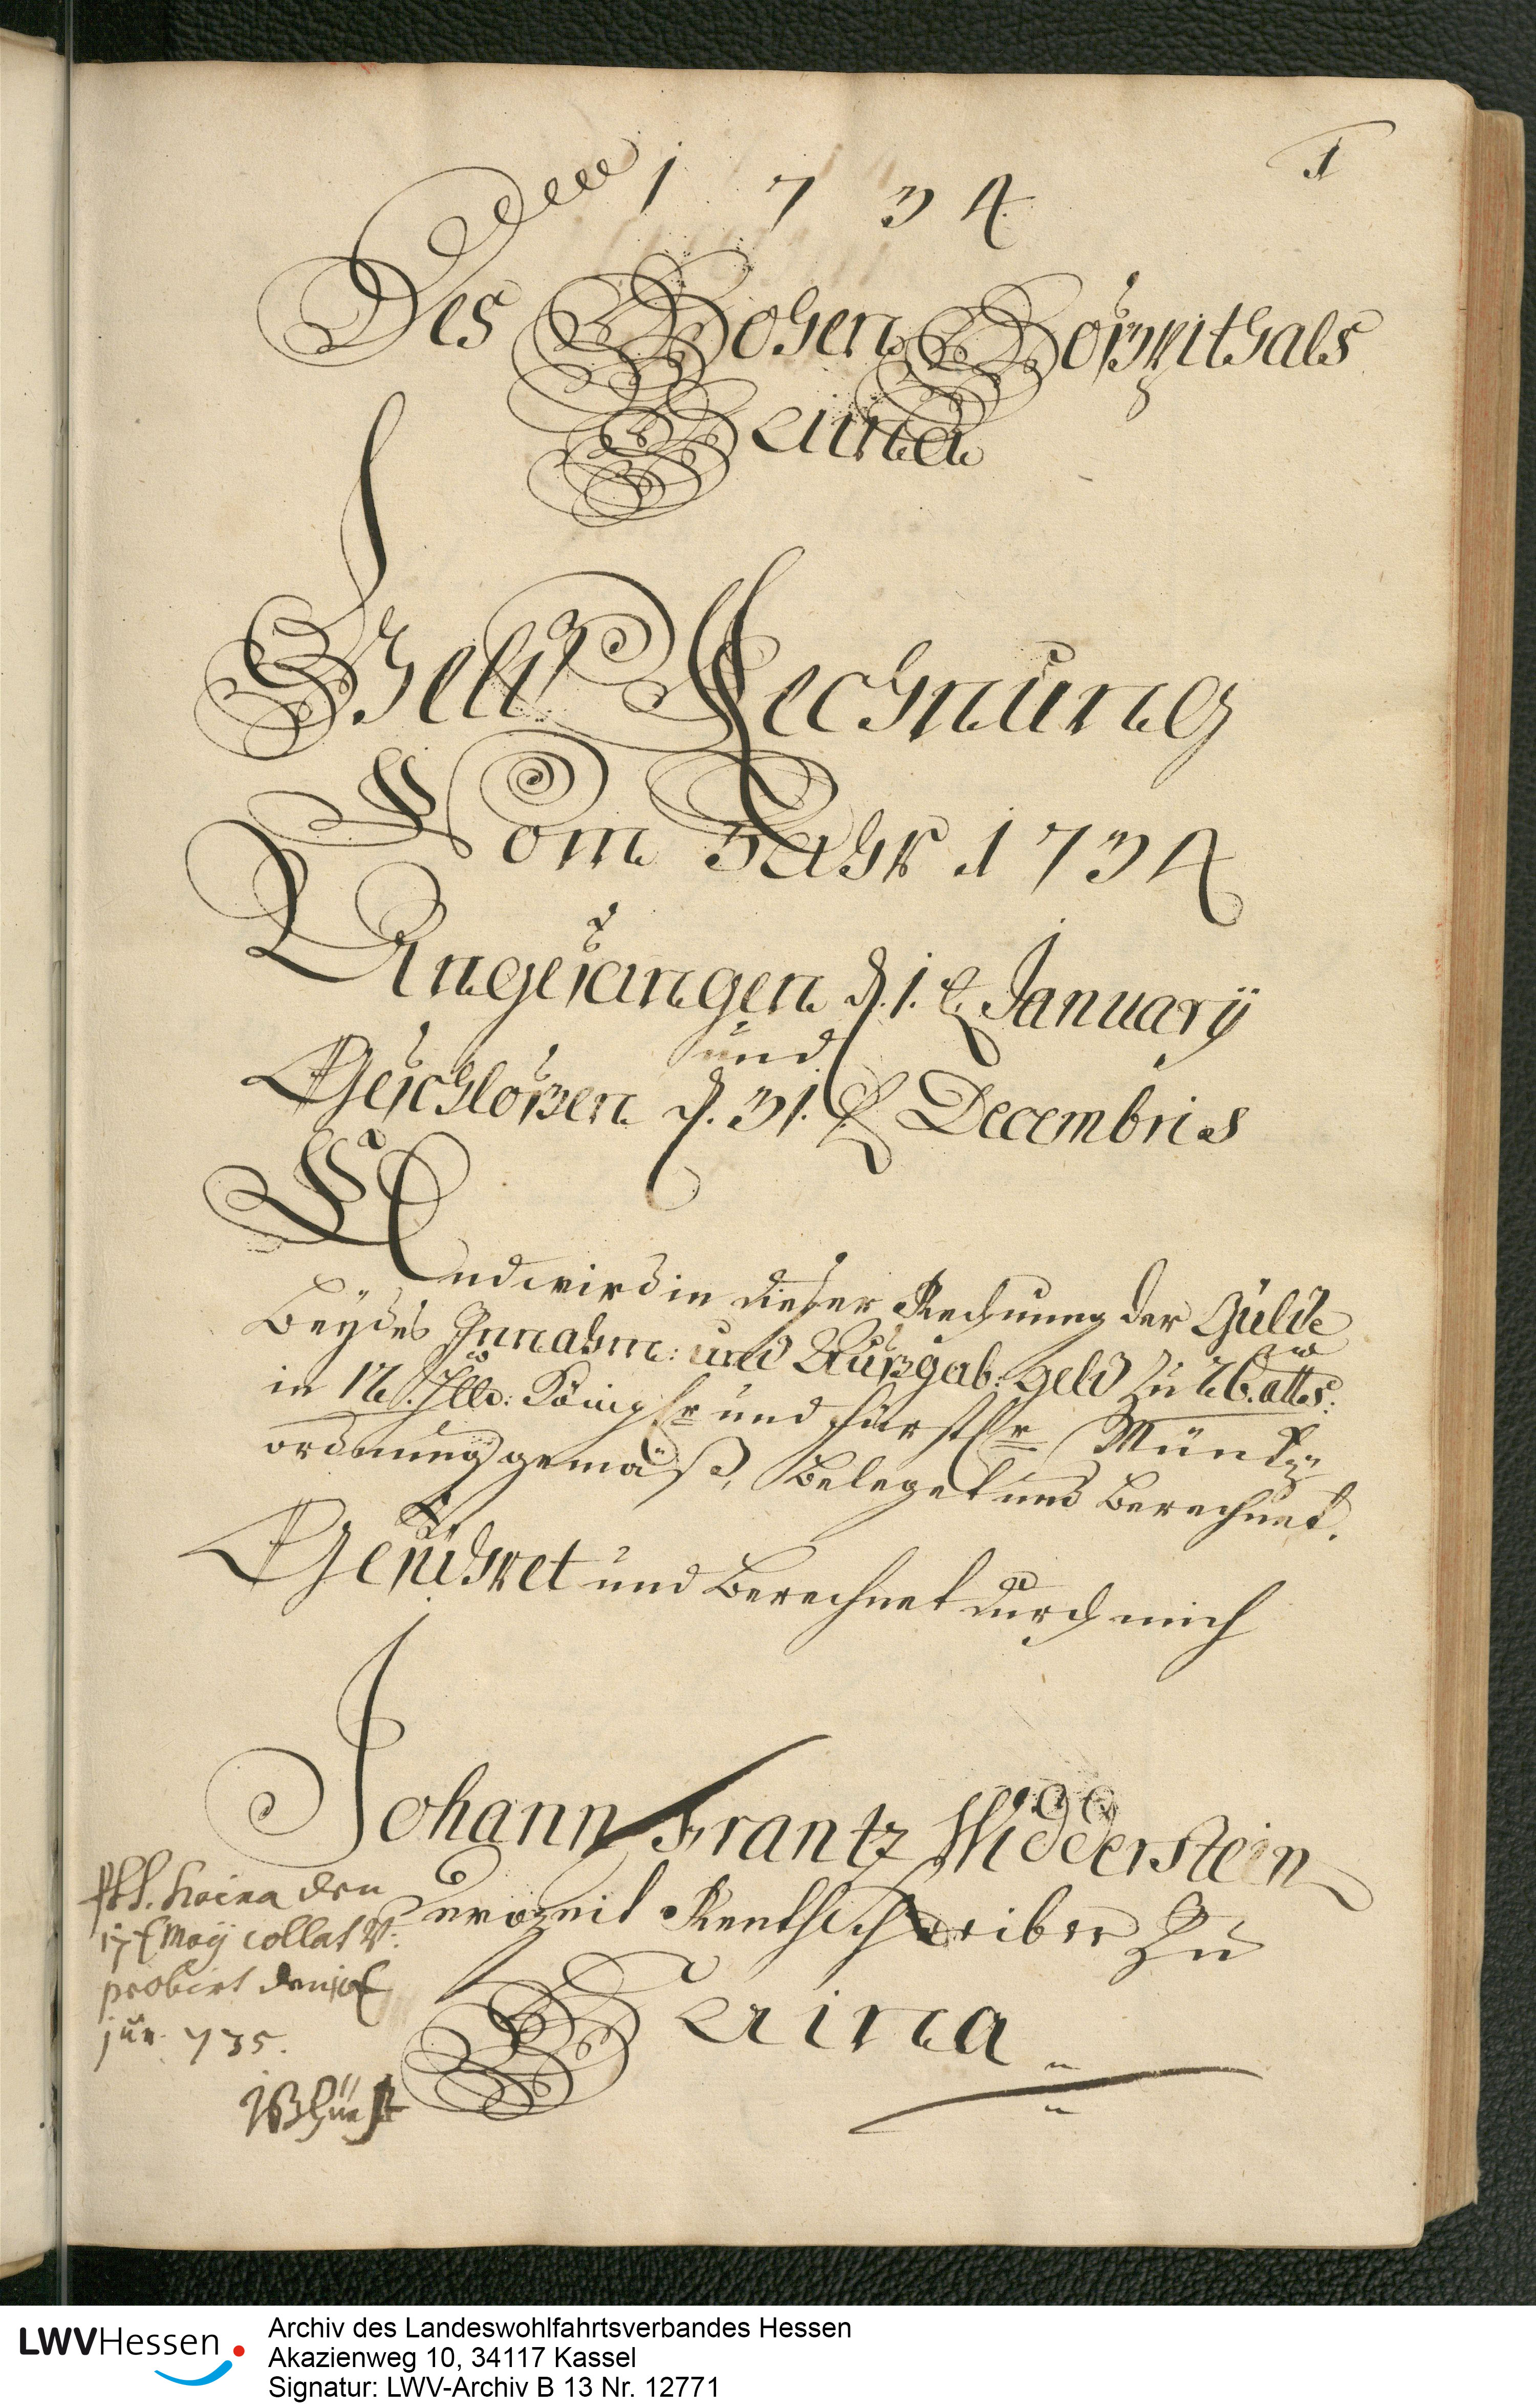 1
1734
Des Hohen Hoßpithals
Heina
Geld Rechnung
Vom Jahr 1734
Angefangen d. 1.t January
und
Geschloßen d. 31.t Decembris
Und wird in dießer Rechnung der Gülde
Beydes Innahm: und Außgab: geld zu 26. albs:
in 12 Königl. und fürstl. Müntz
ordnung gemäß, Beleget und Berechnet.
Geführet und Berechnet durch mich
Johann Frantz Widderstein
Derozeit Renthschreiber Zu
Haina
Haina den
17t May collat.
probirt den 10t
jun. 735.
LWVHessen
Archiv des Landeswohlfahrtsverbandes Hessen
Akazienweg 10, 34117 Kassel
Signatur: LWV-Archiv B 13 Nr. 12771